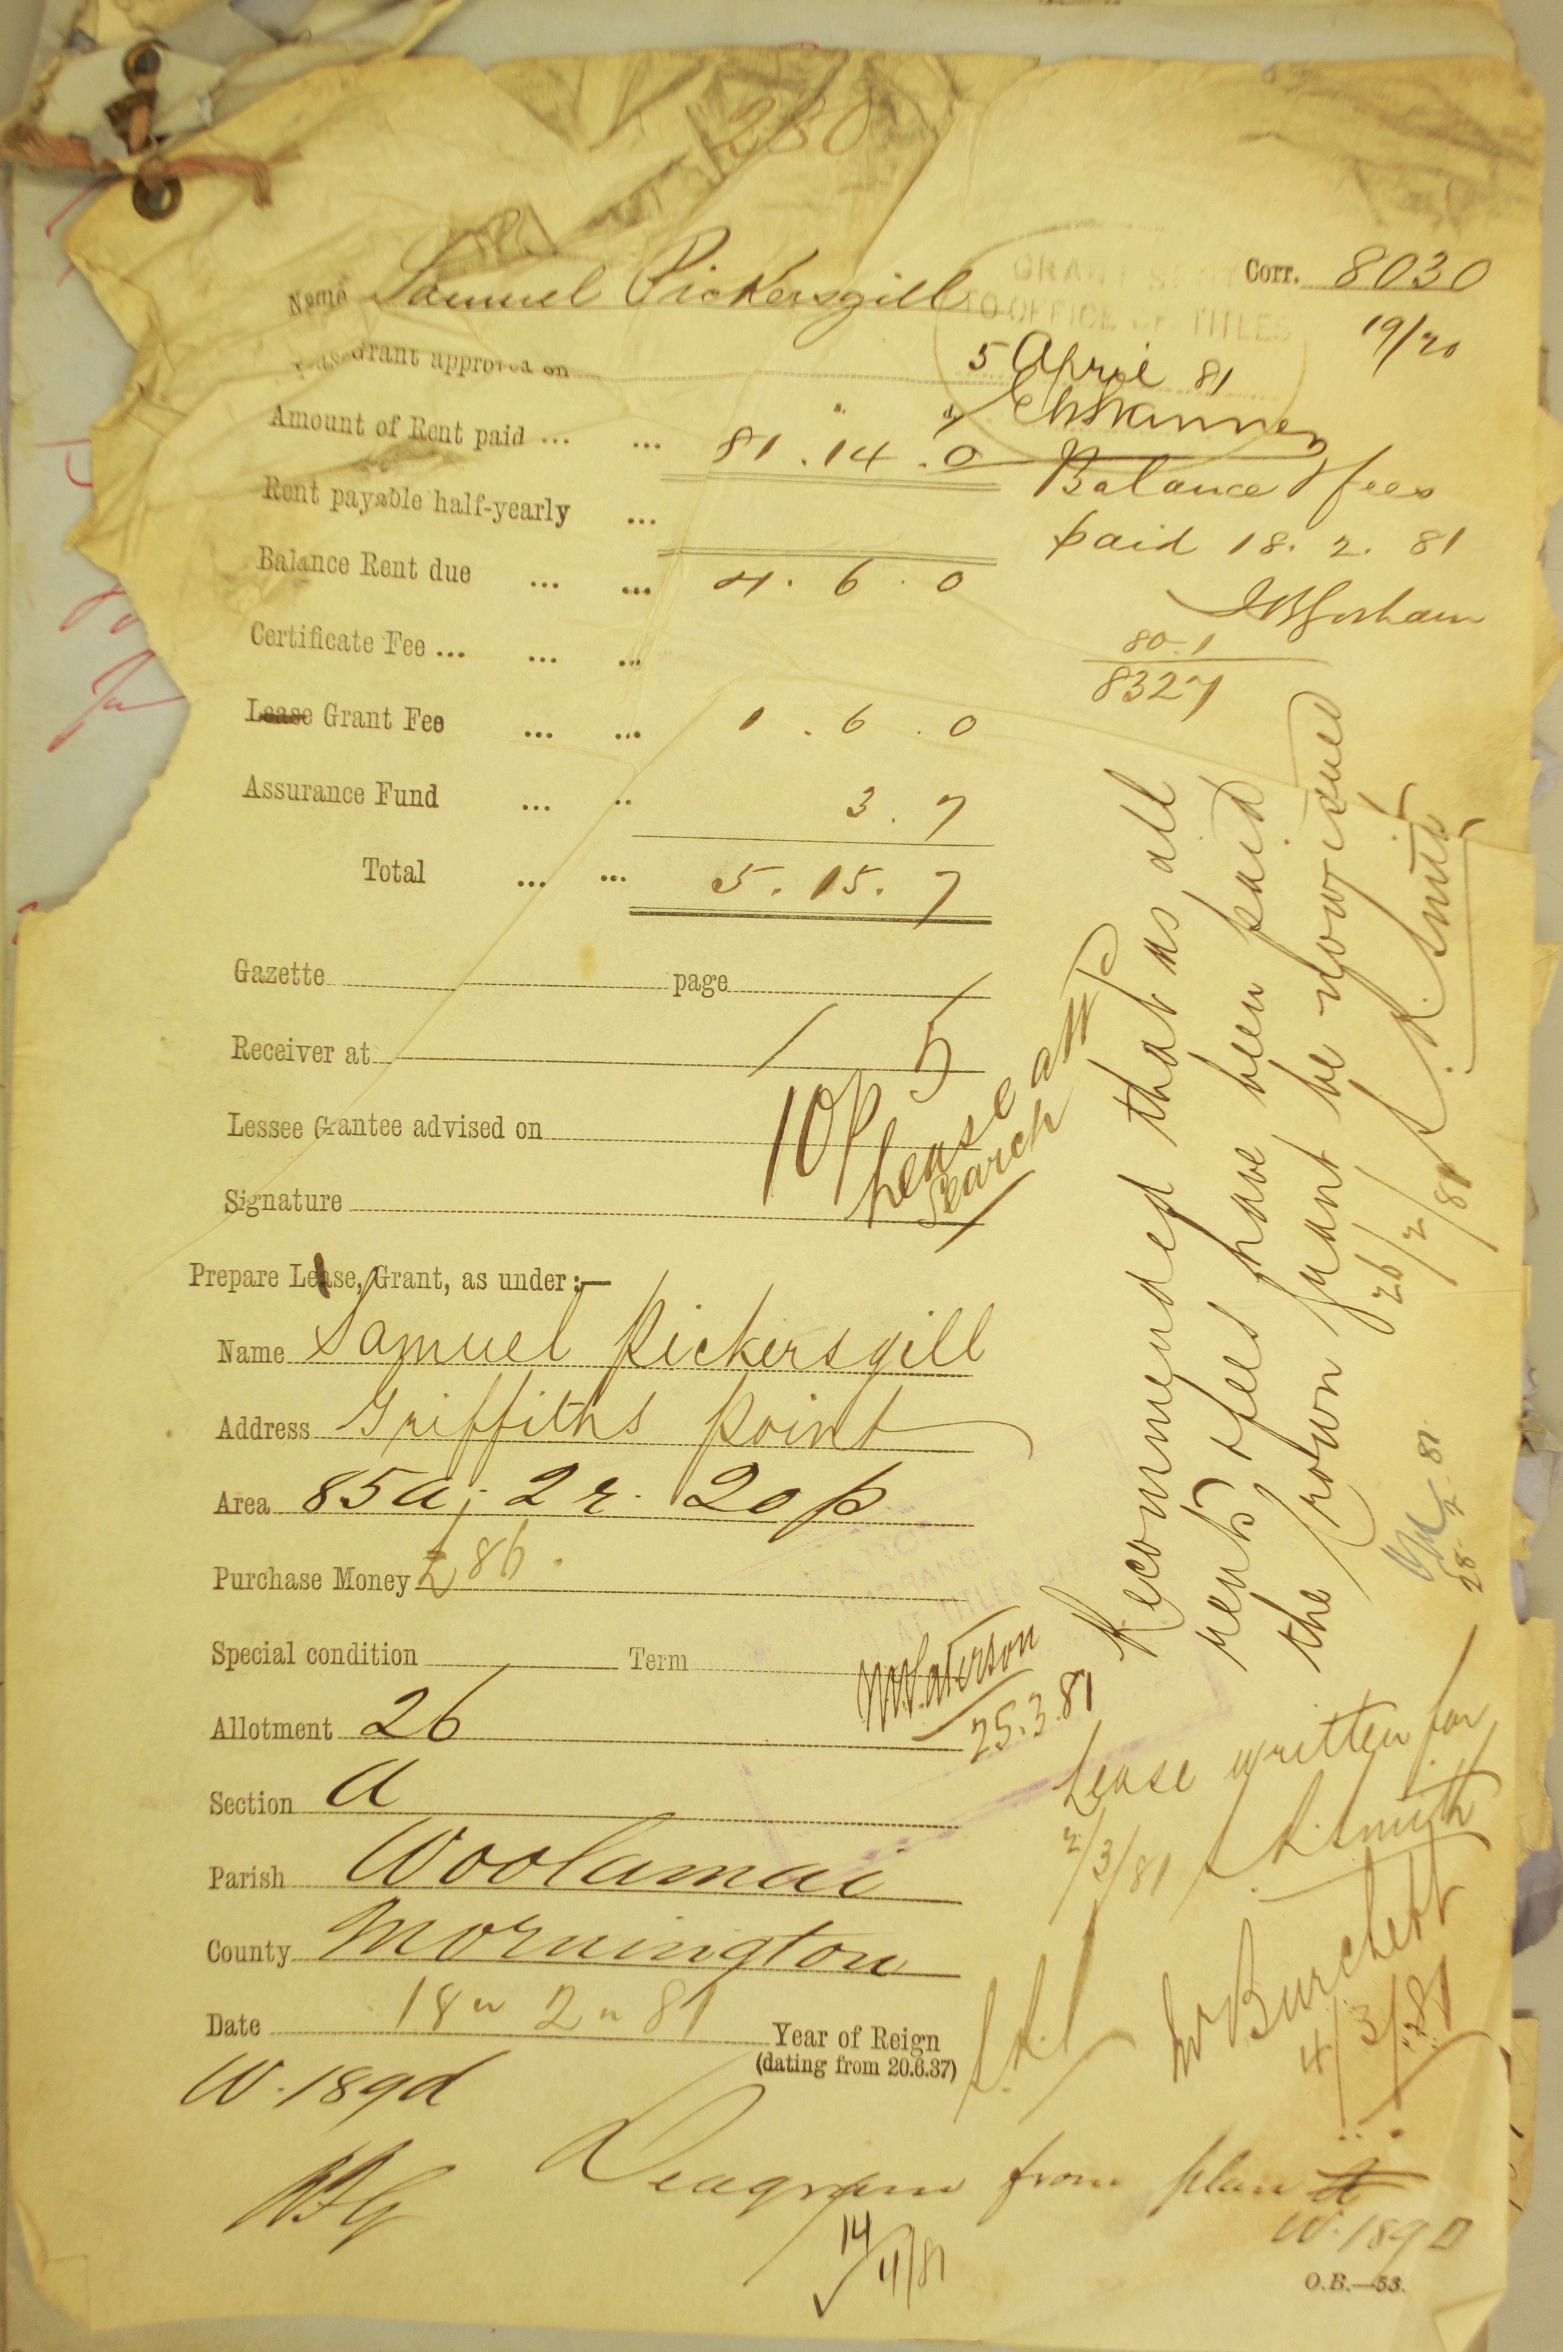 230
Name Samuel Pickersgill
Corr. 8030
19/20
GRANT SENT
TO OFFICE OF TITLES
5 April 81
Grant approved on
Amount of Rent paid ... ... 81 . 14 . 0
Balance & fees
paid 18. 2. 81
Rent payable half-yearly ...
Balance Rent due ... ... 4 . 6 . 0
80.1
8327
Certificate Fee ... ... ...
Lease Grant Fee ... ... 1 . 6 . 0
Assurance Fund ... .. 3 . 7
Total ... ... 5 . 15 . 7
Gazette page
Receiver at
Lessee Grantee advised on
Signature
10p 5
Lease attd
Search
Recommended that as all
rents & fees have been paid
the Crown grant be now issued
26/2/81
28. 2. 81
Prepare Lease, Grant, as under :—
Name Samuel Pickersgill
Address Griffiths Point
Area 85a. 2r. 20p
Purchase Money £86.
Special condition Term
W Paterson
25.3.81
Allotment 26
Section A
Parish Woolamai
County Mornington
Date 18 " 2 " 81
Year of Reign
(dating from 20.6.37)
Lease written for
2/3/81 Smith
W Burchett
4/3/81
W.189d
Diagram from plan
W.189D
14/4/81
O.B.—53.